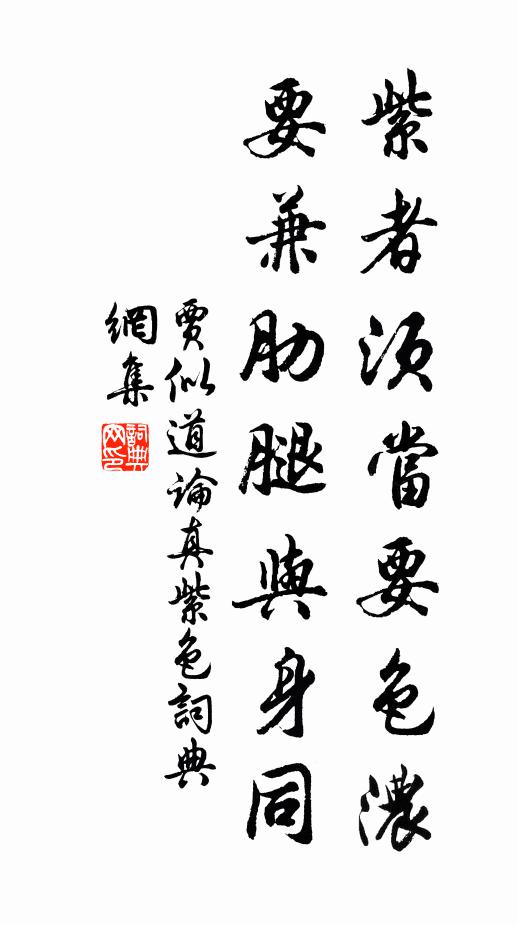 紫者須當要色濃
要兼肋腿與身同
賈似道論真紫色詞典
網集
詞典
网印